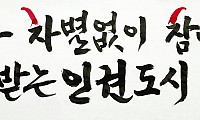 차별없이 참
받는 인권도시